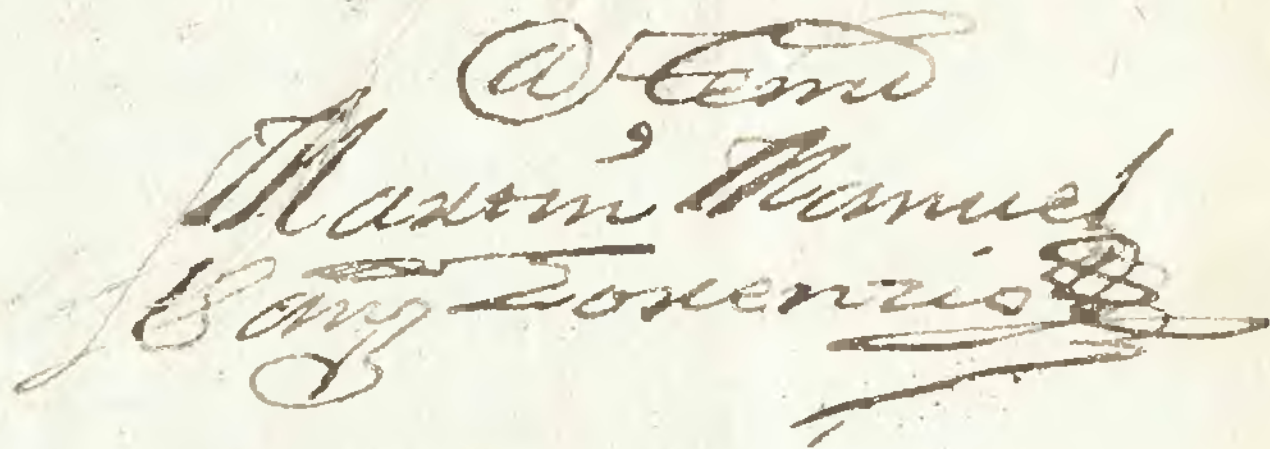 Ante mi
Martin Manuel
Cang Lorenzio